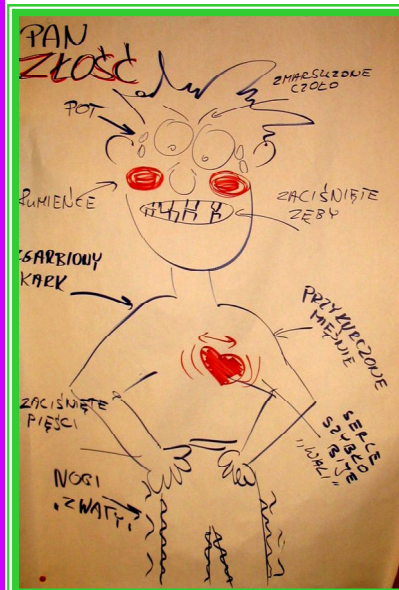 PAN
ZŁOŚĆ
ZMARSZCZONE
CZOŁO
POT
RUMIEŃCE
ZACIŚNIĘTE
ZĘBY
ZGARBIONY
KARK
PRZYKURCZONE
MIĘŚNIE
ZACIŚNIĘTE
PIĘŚCI
SERCE
SZYBKO
BIJE
"WALI"
NOGI
"Z WATY"